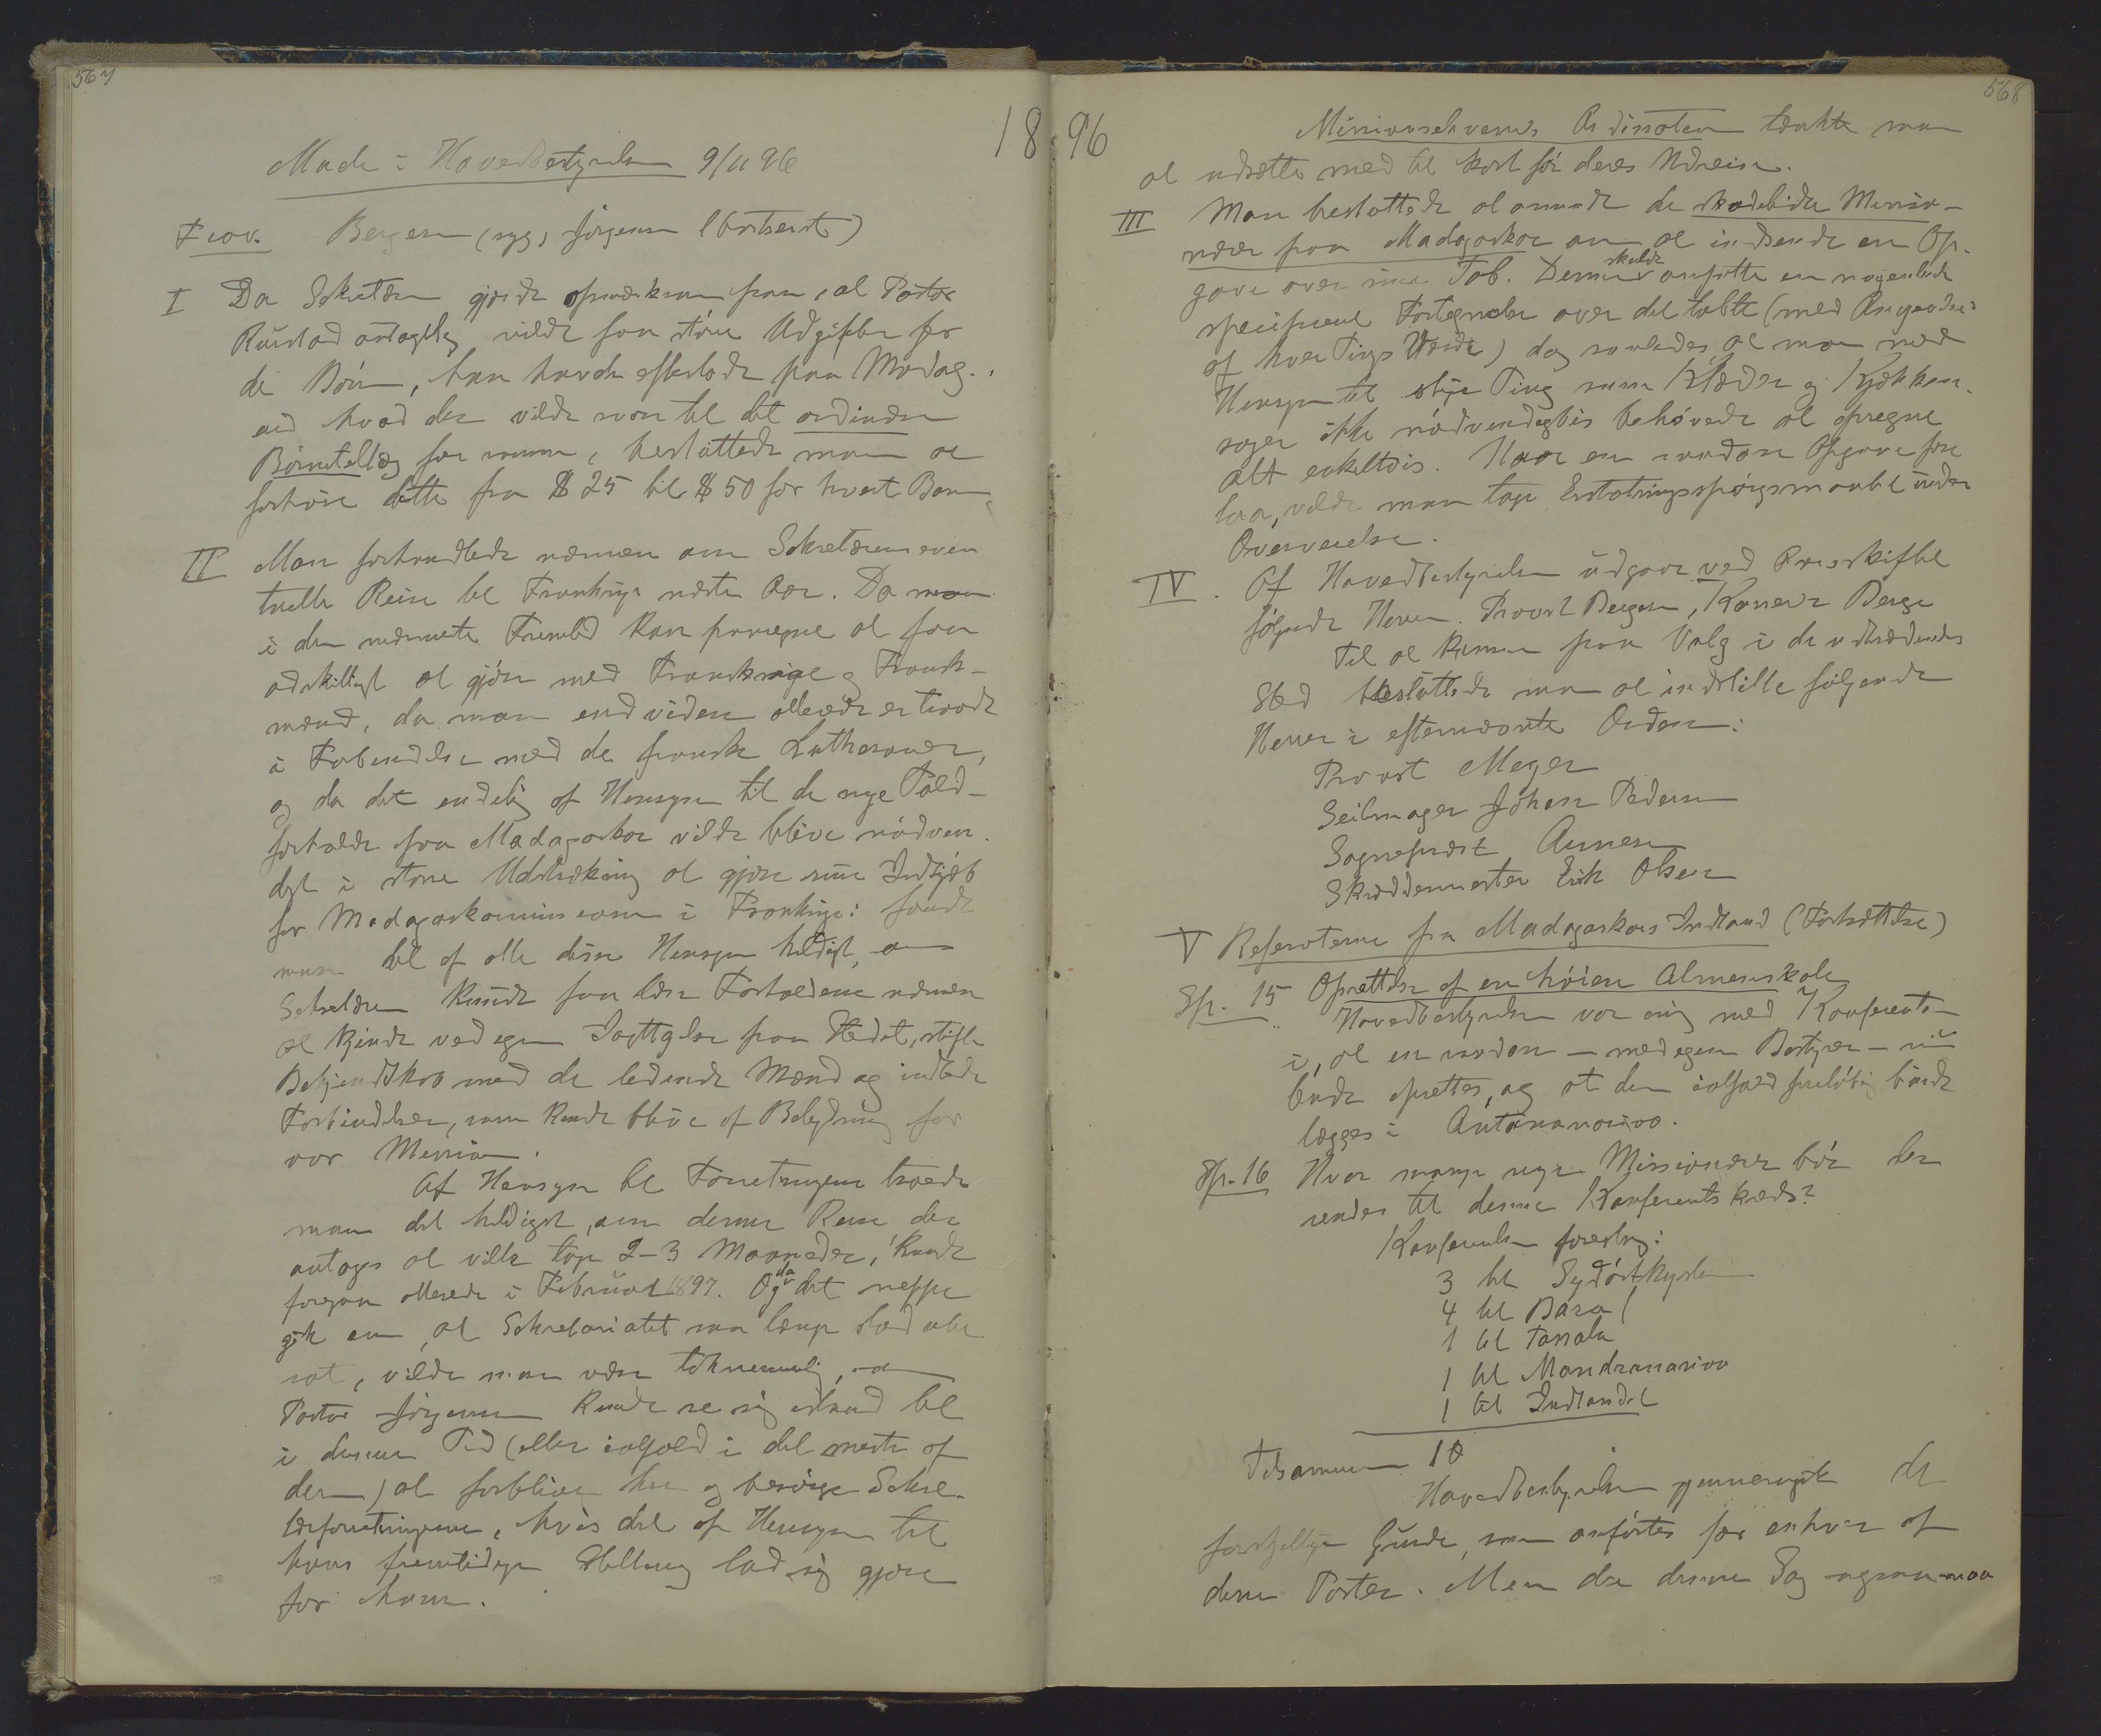 567
18
Møde i Hovedbestyrelsen 9/11 96
Frav. Bergesen (syg) Jørgensen (bortreist)
I Da Sekretæren gjorde opmerksom paa, at Pastor
Rustad antagelig vilde faa større Udgifter for
de Børn, han havde efterladt paa Madag.,
end hvad der vilde svare til det ordinære
Børnetillæg for samme, besluttede man at
forhøie dette fra $ 25 til $ 50 for hvert Barn.
II Man forhandlede nærmere om Sekretærens even
tuelle Reise til Frankrige næste Aar. Da man
i den nærmeste Fremtid kan paaregne at faa
adskilligt at gjøre med Frankrige og Fransk-
mænd, da man endvidere allerede er traadt
i Forbindelse med de franske Lutheraner,
og da det endelig af Hensyn til de nye Told-
forholde paa Madagaskar vilde blive nødven
digt i større Udstrækning at gjøre sine Indkjøb
for Madagaskarmissionen i Frankrige: fandt
man det af alle disse Hensyn heldigt, om
Sekretæren kunde faa lære Forholdene nærmere
at kjende ved egen Iagttagelse paa Stedet, stifte
Bekjendtskab med de ledende Mænd og indlede
Forbindelser, som kunde blive af Betydning for
vor Mission.
Af Hensyn til Forretningerne troede
man det heldigst, om denne Reise der
antages at ville tage 2-3 Maaneder, kunde
foregaa allerede i Februar 1897. Og da det neppe
gik an, at Sekretariatet saa længe stod ube
sat, vilde man være taknemmelig, om
Pastor Jørgensen kunde se sig istand til
i denne Tid (eller ialfald i det meste af
den) at forblive her og besørge Sekre-
tærforretningerne, hvis det af Hensyn til
hans fremtidige Stilling lod sig gjøre
for ham.
568
96
Missionselevernes Ordination tænkte man
at udsætte med til kort før deres Udreise.
III Man besluttede at anmode de skadelidte Missio-
nærer paa Madagaskar om at indsende en Op-
gave over sine Tab. Denne skulde ansætte en nogenlunde
specificeret Fortegnelse over det tabte (med Angivelse
af hver Tings Værdi) dog saaledes at man med
Hensyn til slige Ting som Klæder og Kjøkken-
sager ikke nødvendigvis behøvede at opregne
alt enkeltvis. Naar en saadan Opgave fore
laa, vilde man tage Erstatningsspørgsmaalet under
Overveielse.
IV. Af Hovedbestyrelsen udgaar ved Aarsskiftet
følgende Herrer. Provst Bergesen, Berge
Til at komme paa Valg i de udtrædendes
Sted besluttede man at indstille følgende
Herrer i efternævnte Orden:
Provst Meyer
Seilmager Johan Pedersen
Sogneprest Aunesen
Skræddermester Erik Olsen
V Referaterne fra Madagaskars Indland (Fortsættelse)
Sp. 15 Oprettelse af en høiere Almenskole
Hovedbestyrelsen var enig med Konferents-
i, at en saadan - med egen Bestyrer - nu
burde oprettes, og at den ialfald foreløbig burde
lægges i Antananarivo.
Sp. 16 Hvor mange nye Missionærer bør der
sendes til denne Konferentskreds?
Konferentsen foreslog:
3 til Sydøstkysten
4 til Bara
1 til Tanala
1 til Mandranarivo
1 til Indlandet
Tilsammen 10
Hovedbestyrelsen gjennemgik de
forskjellige Grunde, som anførtes for enhver af
disse Poster. Men da denne Sag ogsaa maa